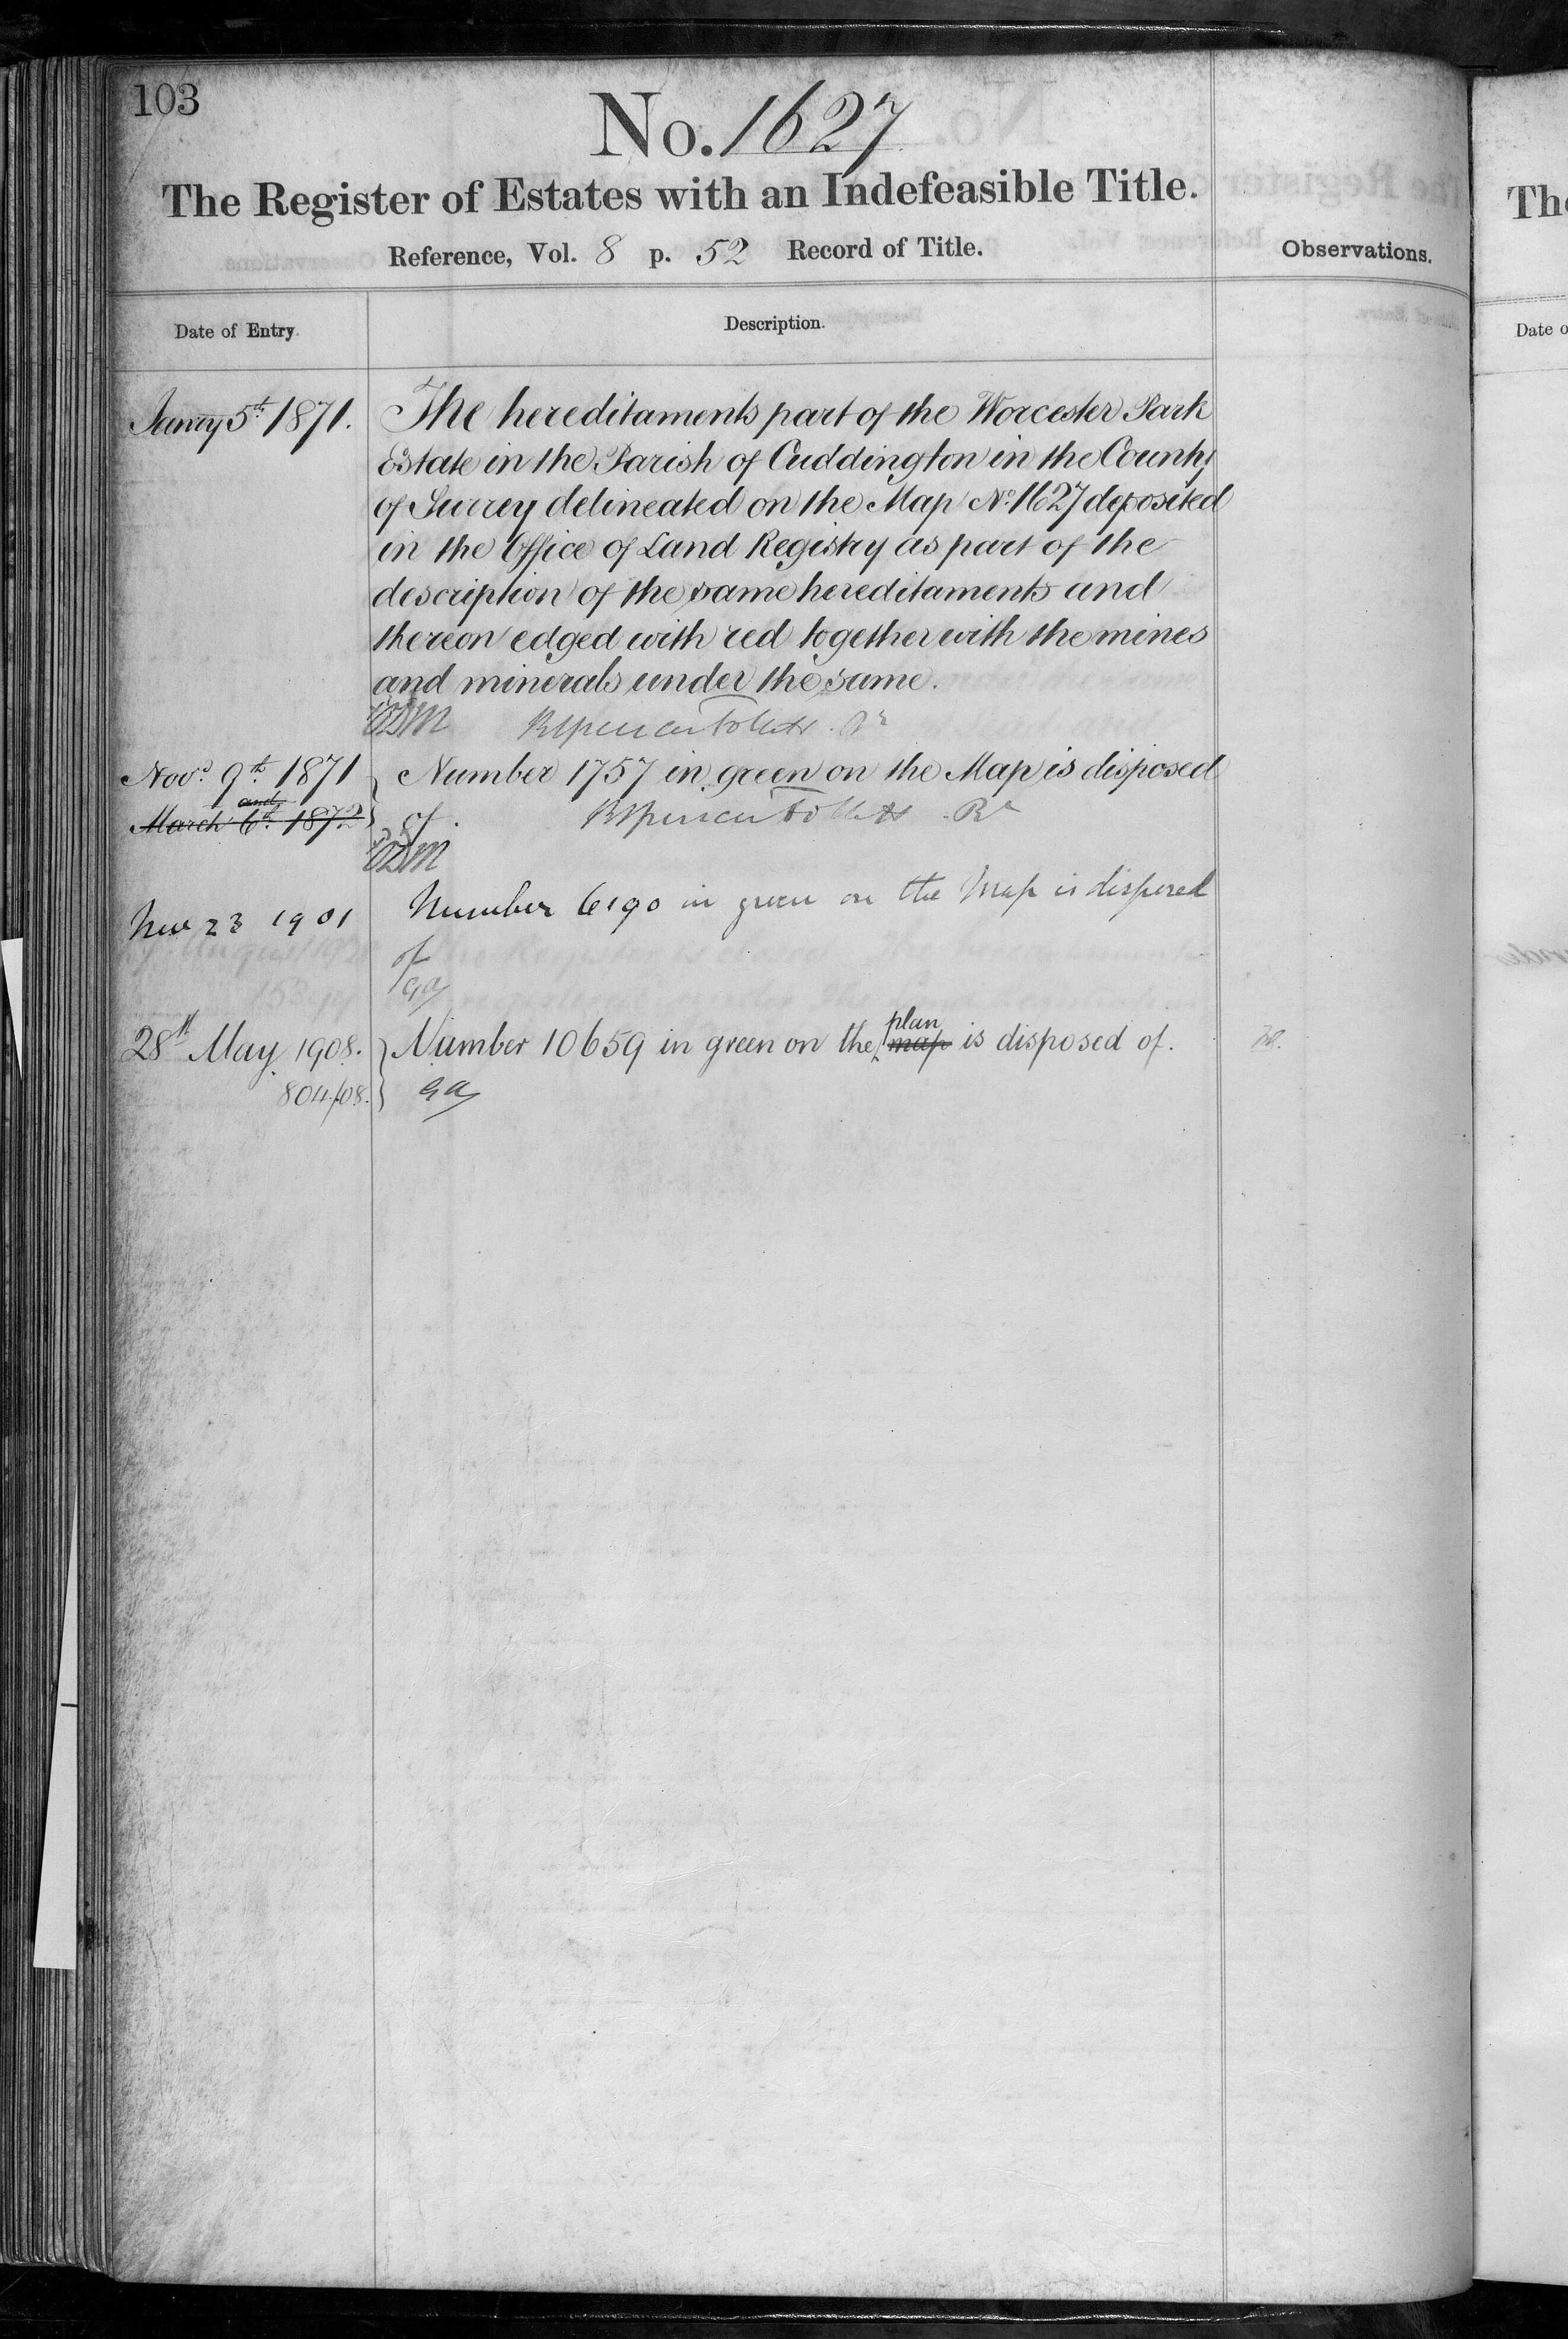 103
No. 1627
The Register of Estates with an Indefeasible Title.
Reference, Vol. 8 p. 52 Record of Title.
Observations.
Date of Entry.
Description.
Janry 5th 1871. The hereditaments part of the Worcester Park
Estate in the Parish of Cuddington in the County
of Surrey delineated on the Map No. 1627 deposited
in the Office of Land Registry as part of the
description of the same hereditaments and
thereon edged with red together with the mines
and minerals under the same.
Novr 9th 1871 Number 1757 in green on the Map is disposed
and
March 6th 1872 of.
Nov 23 1901 Number 6190 in green on the Map is disposed
of
GA
plan
28th May 1908. Number 10659 in green on the map is disposed of.
804/08. GA
The
Date o